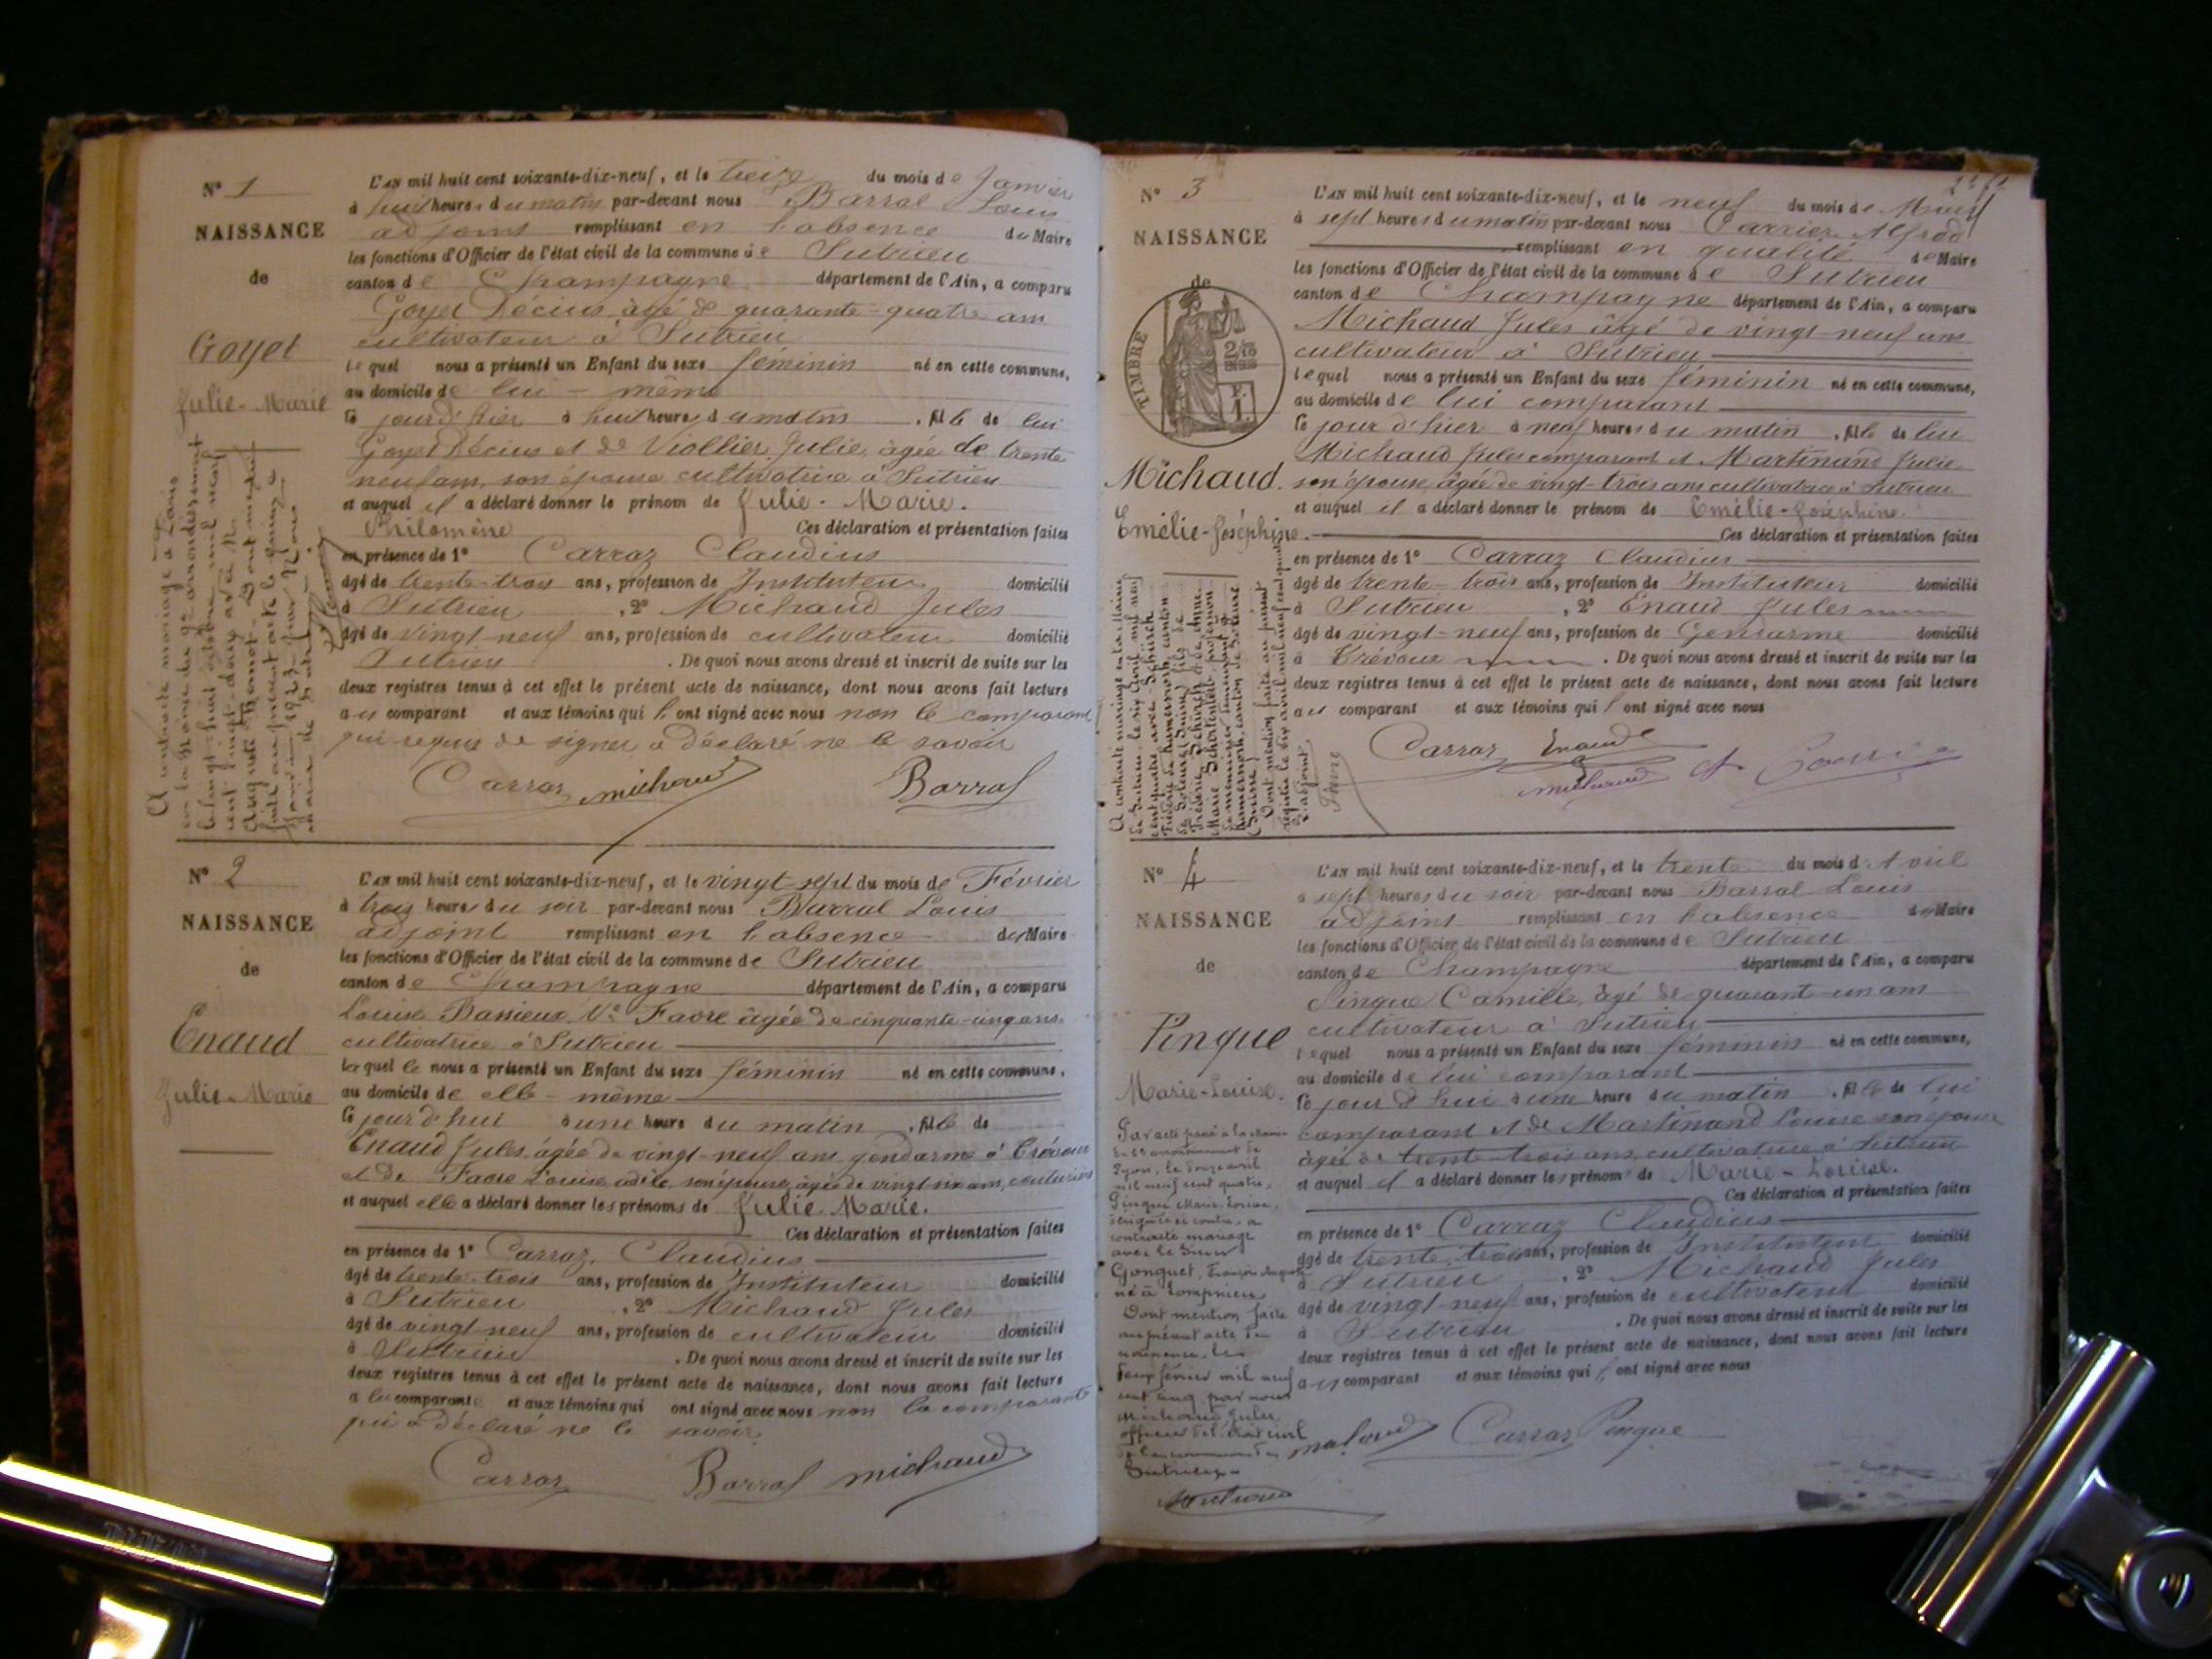 N° 1
NAISSANCE
de
Goyet
Julie-Marie
L'AN mil huit cent soixante-dix-neuf, et le treize du mois de Janvier
à huit heures du matin par-devant nous Barral Louis
adjoint remplissant en l'absence du Maire
les fonctions d'Officier de l'état civil de la commune de Sutrieu
canton de Champagne département de l'Ain, a comparu
Goyet Décius âgé de quarante-quatre ans
cultivateur à Sutrieu
lequel nous a présenté un Enfant du sexe féminin né en cette commune,
au domicile de lui-même
le jour d'hier à huit heures du matin, fille de lui
Goyet Décius et de Viollier Julie, âgée de trente
neuf ans, son épouse cultivatrice à Sutrieu
et auquel il a déclaré donner le prénom de Julie-Marie.
Philomène Ces déclaration et présentation faites
en présence de 1° Carraz Claudius
âgé de trente-trois ans, profession de Instituteur domicilié
à Sutrieu, 2° Michaud Jules
âgé de vingt-neuf ans, profession de cultivateur domicilié
Sutrieu. De quoi nous avons dressé et inscrit de suite sur les
deux registres tenus à cet effet le présent acte de naissance, dont nous avons fait lecture
au comparant et aux témoins qui l'ont signé avec nous non le comparant
qui requis de signer a déclaré ne le savoir
Carraz michaud Barral
A contracté mariage à Paris
en la Mairie du arrondissement
le vingt-huit octobre mil neuf
cent vingt-deux avec M.
Auguste Dont mention
faite au présent acte le quinze
Janvier 1923 par Nous
maire de Sutrieu
N° 2
NAISSANCE
de
Enaud
Julie-Marie
L'AN mil huit cent soixante-dix-neuf, et le vingt-sept du mois de Février
à trois heures du soir par-devant nous Barral Louis
adjoint remplissant en l'absence du Maire
les fonctions d'Officier de l'état civil de la commune de Sutrieu
canton de Champagne département de l'Ain, a comparu
Louise Bassieux Ve Favre âgée de cinquante-cinq ans
cultivatrice à Sutrieu
laquelle nous a présenté un Enfant du sexe féminin né en cette commune,
au domicile de elle-même
le jour d'hui à une heure du matin, fille de
Enaud Jules, âgée de vingt-neuf ans, gendarme à Trévoux
et de Favre Louise son épouse, âgée de vingt-six ans, couturière
et auquel elle a déclaré donner les prénoms de Julie-Marie.
Ces déclaration et présentation faites
en présence de 1° Carraz, Claudius
âgé de trente-trois ans, profession de Instituteur domicilié
à Sutrieu, 2° Michaud Jules
âgé de vingt-neuf ans, profession de cultivateur domicilié
à Sutrieu. De quoi nous avons dressé et inscrit de suite sur les
deux registres tenus à cet effet le présent acte de naissance, dont nous avons fait lecture
a la comparante et aux témoins qui ont signé avec nous non la comparante
qui a déclaré ne le savoir
Carraz Barral michaud
N° 3
NAISSANCE
de
TIMBRE
Michaud
Emélie-Joséphine.
L'AN mil huit cent soixante-dix-neuf, et le neuf du mois de
à sept heures du matin par-devant nous Carrier Alfred
remplissant en qualité de Maire
les fonctions d'Officier de l'état civil de la commune de Sutrieu
canton de Champagne département de l'Ain, a comparu
Michaud Jules âgé de vingt-neuf ans
cultivateur à Sutrieu
lequel nous a présenté un Enfant du sexe féminin né en cette commune,
au domicile de lui comparant
le jour d'hier à neuf heures du matin, fille de lui
Michaud Jules comparant et Martinand Julie
son épouse, âgée de vingt-trois ans cultivatrice à Sutrieu
et auquel il a déclaré donner le prénom de Emélie-Joséphine.
Ces déclaration et présentation faites
en présence de 1° Carraz Claudius
âgé de trente-trois ans, profession de Instituteur domicilié
à Sutrieu, 2° Enaud Jules
âgé de vingt-neuf ans, profession de Gendarme domicilié
à Trévoux. De quoi nous avons dressé et inscrit de suite sur les
deux registres tenus à cet effet le présent acte de naissance, dont nous avons fait lecture
au comparant et aux témoins qui l'ont signé avec nous
Carraz Enaud
michaud
A contracté mariage en la Mairie
de Sutrieu, le six Avril mil neuf
cent quatre avec Schürch
Dont mention faite au présent
L'adjoint,
Favre
N° 4
NAISSANCE
de
Pinque
Marie-Louise.
L'AN mil huit cent soixante-dix-neuf, et le trente du mois d'Avril
à sept heures du soir par-devant nous Barral Louis
adjoint remplissant en l'absence du Maire
les fonctions d'Officier de l'état civil de la commune de Sutrieu
canton de Champagne département de l'Ain, a comparu
Pinque Camille, âgé de quarant-un ans
cultivateur à Sutrieu
lequel nous a présenté un Enfant du sexe féminin né en cette commune,
au domicile de lui comparant
le jour d'hui à une heure du matin, fille de lui
comparant et de Martinand Louise son épouse
âgée de trente-trois ans, cultivatrice à Sutrieu
et auquel il a déclaré donner les prénoms de Marie-Louise.
Ces déclaration et présentation faites
en présence de 1° Carraz Claudius
âgé de trente-trois ans, profession de Instituteur domicilié
à Sutrieu, 2° Michaud Jules
âgé de vingt-neuf ans, profession de cultivateur domicilié
à Sutrieu. De quoi nous avons dressé et inscrit de suite sur les
deux registres tenus à cet effet le présent acte de naissance, dont nous avons fait lecture
au comparant et aux témoins qui l'ont signé avec nous
michaud Carraz Pinque
Par acte passé à la mairie
du arrondissement de
Lyon, le douze avril
mil neuf cent quatre,
Pinque Marie-Louise,
désignée ci-contre, a
contracté mariage
avec le Sieur
Gonguet, François
né à Lompnieu
Dont mention faite
au présent acte de
naissance, le
février mil neuf
cent cinq par nous
Michaud Jules,
officier de l'état civil
de la commune de
Sutrieu
Michaud